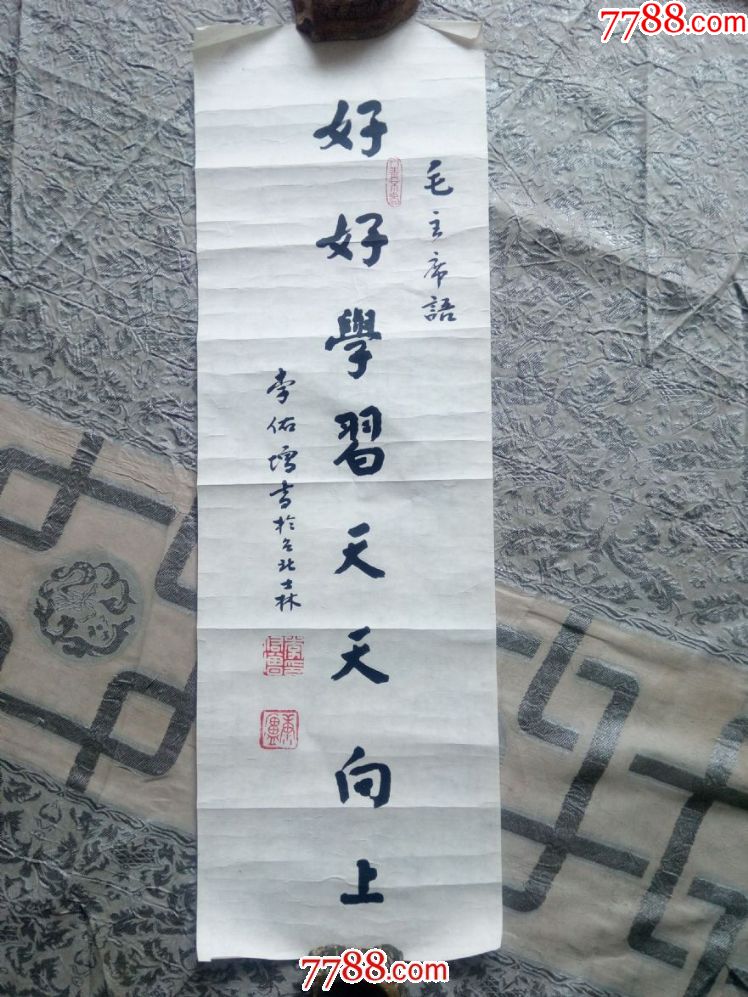 7788.com
毛主席語
好好學習天天向上
李佑增書於台北士林
7788.com